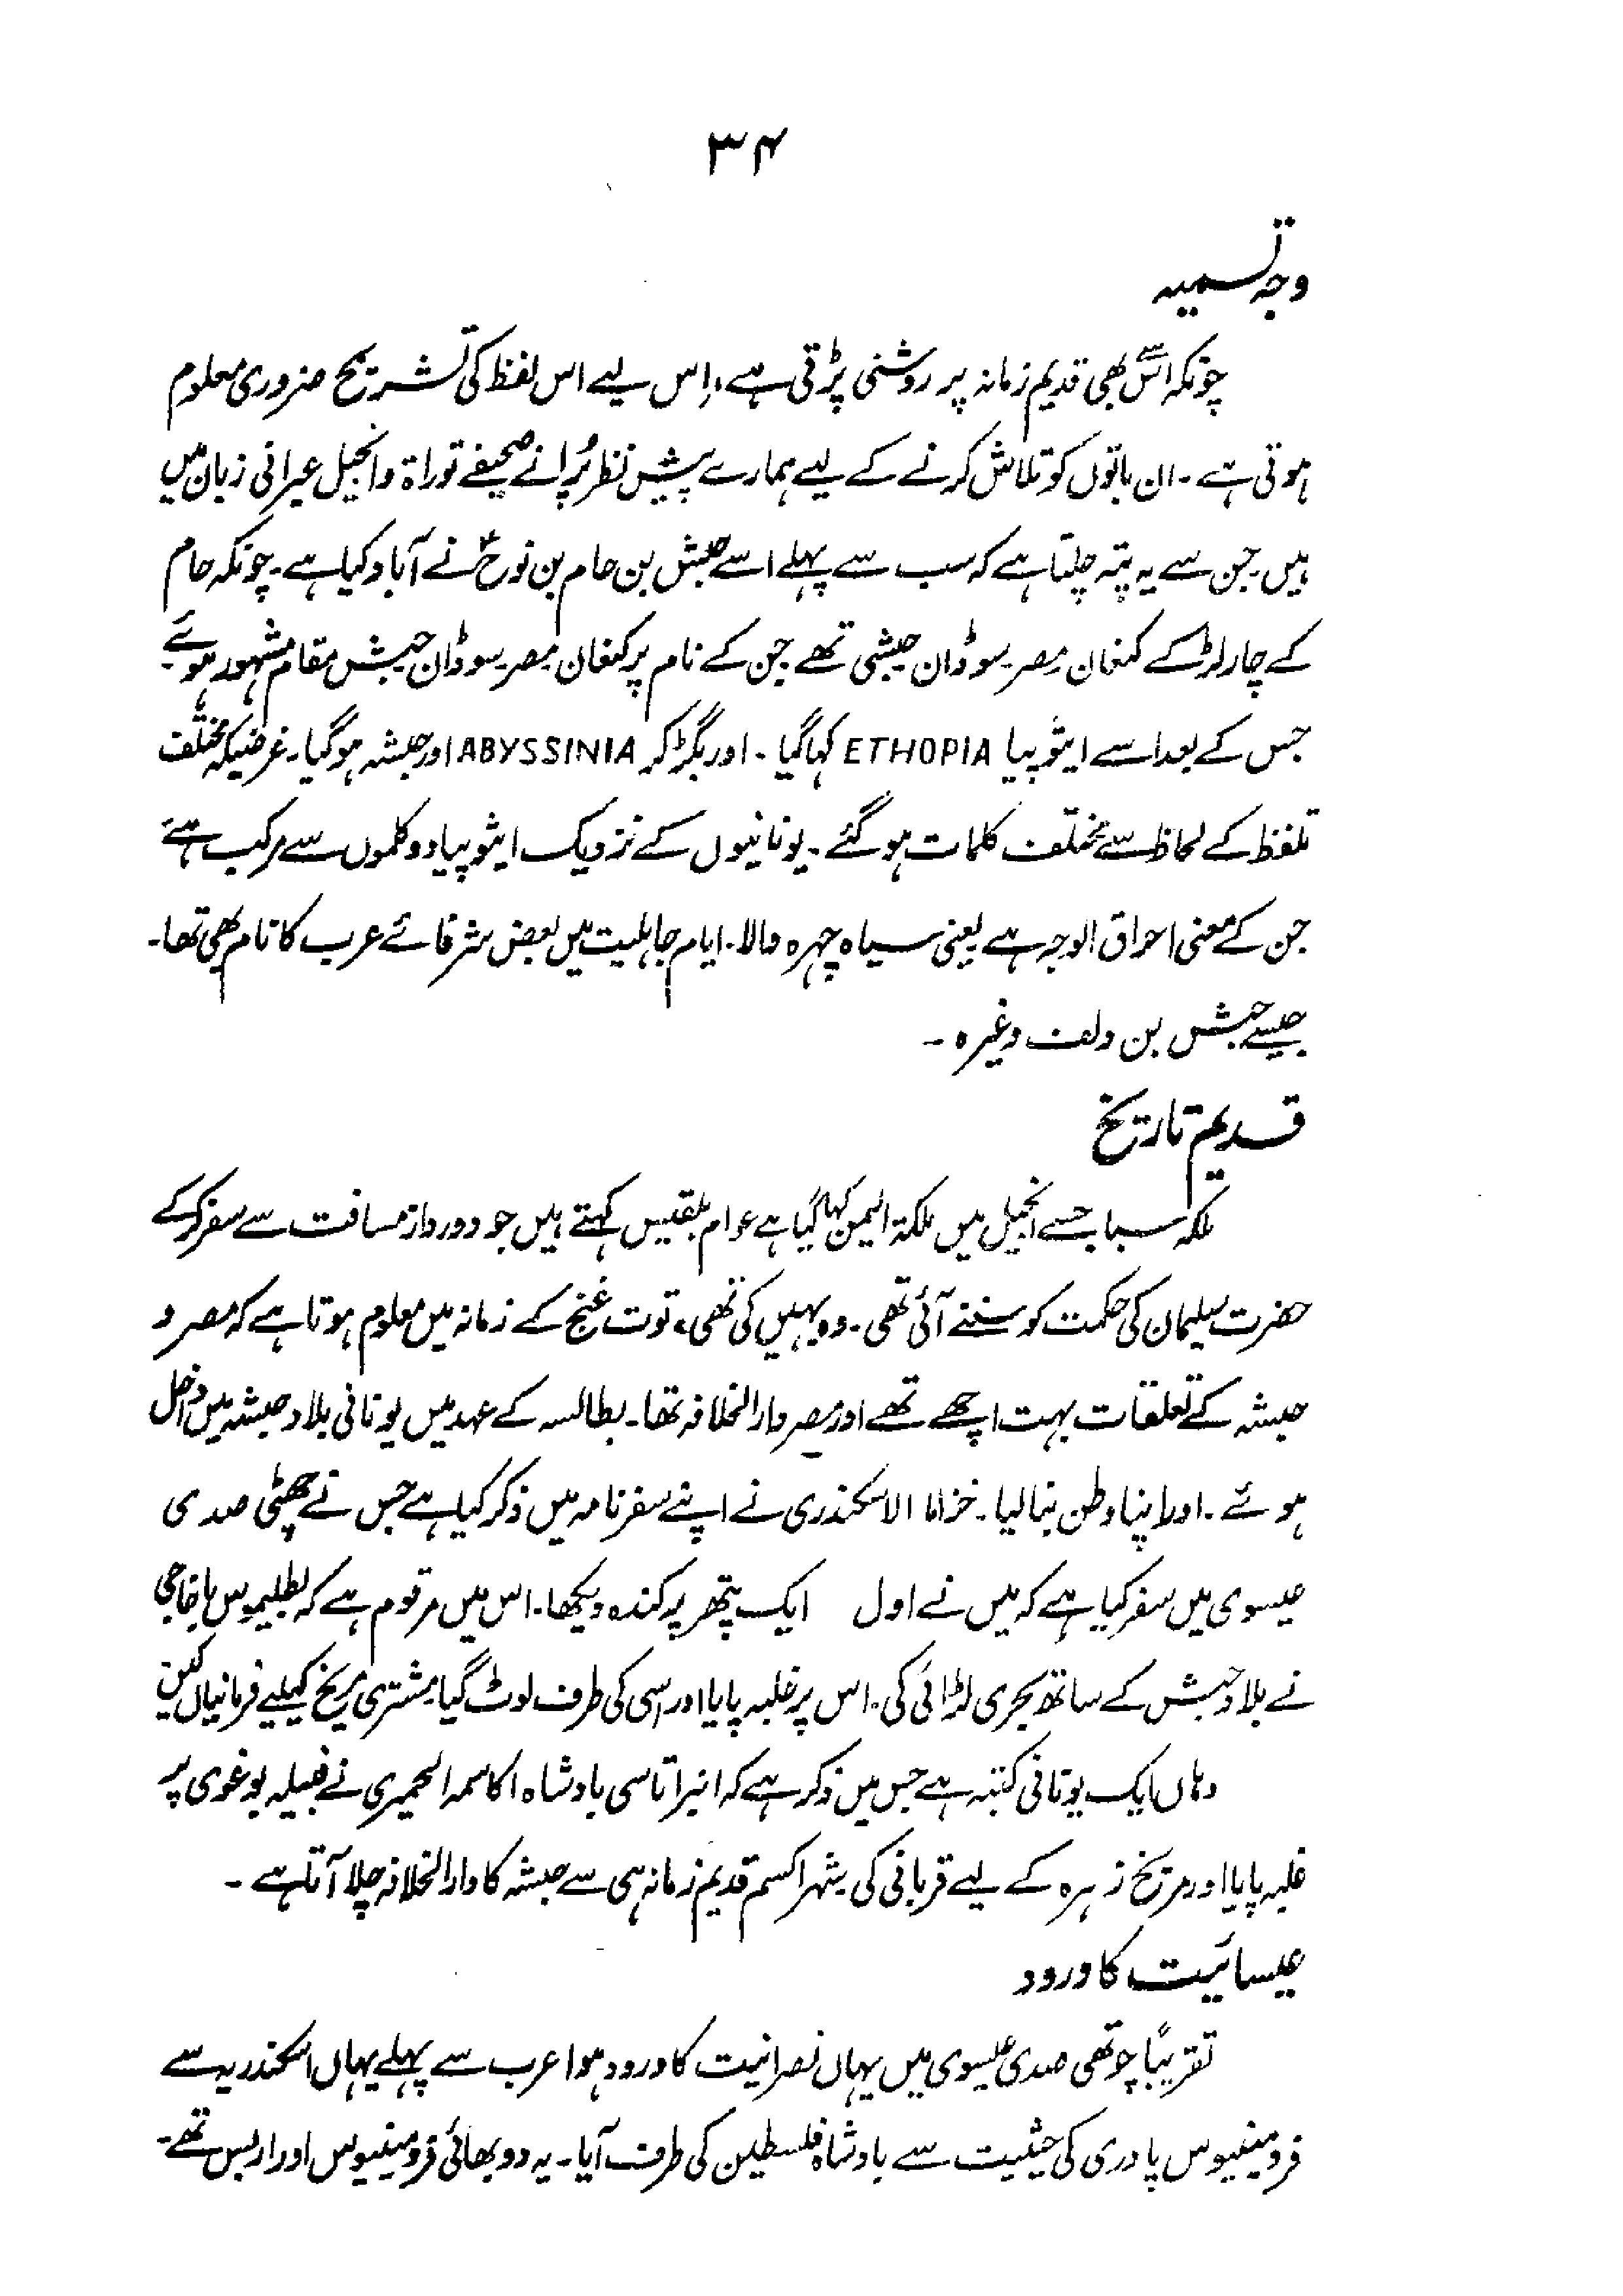 ۳۴
وجہ تسمیہ
چونکہ اس سے بھی قدیم زمانہ پر روشنی پڑتی ہے، اِس لیے اس لفظ کی تشریح ضروری معلوم
ہوتی ہے۔ ان باتوں کو تلاش کرنے کے لیے ہمارے پیش نظر پُرانے صحیفے توراۃ و انجیل عبرانی زبان میں
ہیں۔ جن سے یہ پتہ چلتا ہے کہ سب سے پہلے اسے حبش بن حام بن نوحؑ نے آباد کیا ہے۔ چونکہ حام
کے چار لڑکے کنعان مصر سوڈان حبشی تھے جن کے نام پر کنعان مصر سوڈان حبش مقام مشہور ہوئے۔
جس کے بعد اسے ایتھوپیا ETHOPIA کہا گیا۔ اور بگڑ کر ABYSSINIA اور حبشہ ہو گیا۔ غرضیکہ مختلف
تلفظ کے لحاظ سے مختلف کلمات ہو گئے۔ یونانیوں کے نزدیک ایثوپیا دو کلموں سے مرکب ہے
جن کے معنی احراق الوجہ ہے یعنی سیاہ چہرہ والا۔ ایام جاہلیت میں بعض شرفائے عرب کا نام بھی تھا۔
جیسے حبش بن دلف وغیرہ۔
قدیم تاریخ
ملکہ سبا جسے انجیل میں ملکۃ الیمن کہا گیا ہے عوام بلقیس کہتے ہیں جو دور دراز مسافت سے سفر کر کے
حضرت سلیمان کی حکمت کو سننے آئی تھی۔ وہ یہیں کی تھی، توت عنخ کے زمانہ میں معلوم ہوتا ہے کہ مصر و
حبشہ کے تعلقات بہت اچھے تھے اور مصر دارالخلافہ تھا۔ بطالسہ کے عہد میں یونانی بلاد حبشہ میں داخل
ہوئے۔ اور اپنا وطن بنا لیا۔ خزاما الاسکندری نے اپنے سفر نامہ میں ذکر کیا ہے جس نے چھٹی صدی
عیسوی میں سفر کیا ہے کہ میں نے اول ایک پتھر پر کندہ دیکھا۔ اس میں مرقوم ہے کہ بطلیموس
نے بلاد حبش کے ساتھ بحری لڑائی کی۔ اس پر غلبہ پایا اور اسی کی طرف لوٹ گیا مشتری مریخ کیلیے قربانیاں کیں
وہاں ایک یونانی کتبہ ہے جس میں ذکر ہے کہ انیراتاسی بادشاہ اکاسمہ الحمیری نے قبیلہ بوغوی پر
غلبہ پایا اور مریخ زہرہ کے لیے قربانی کی شہر اکسم قدیم زمانہ ہی سے حبشہ کا دارالخلافہ چلا آتا ہے۔
عیسائیت کا ورود
تقریبًا چوتھی صدی عیسوی میں یہاں نصرانیت کا ورود ہوا عرب سے پہلے یہاں اسکندریہ سے
فرومینیوس پادری کی حیثیت سے بادشاہ فلسطین کی طرف آیا۔ یہ دو بھائی فرومینیوس اور اربس تھے۔